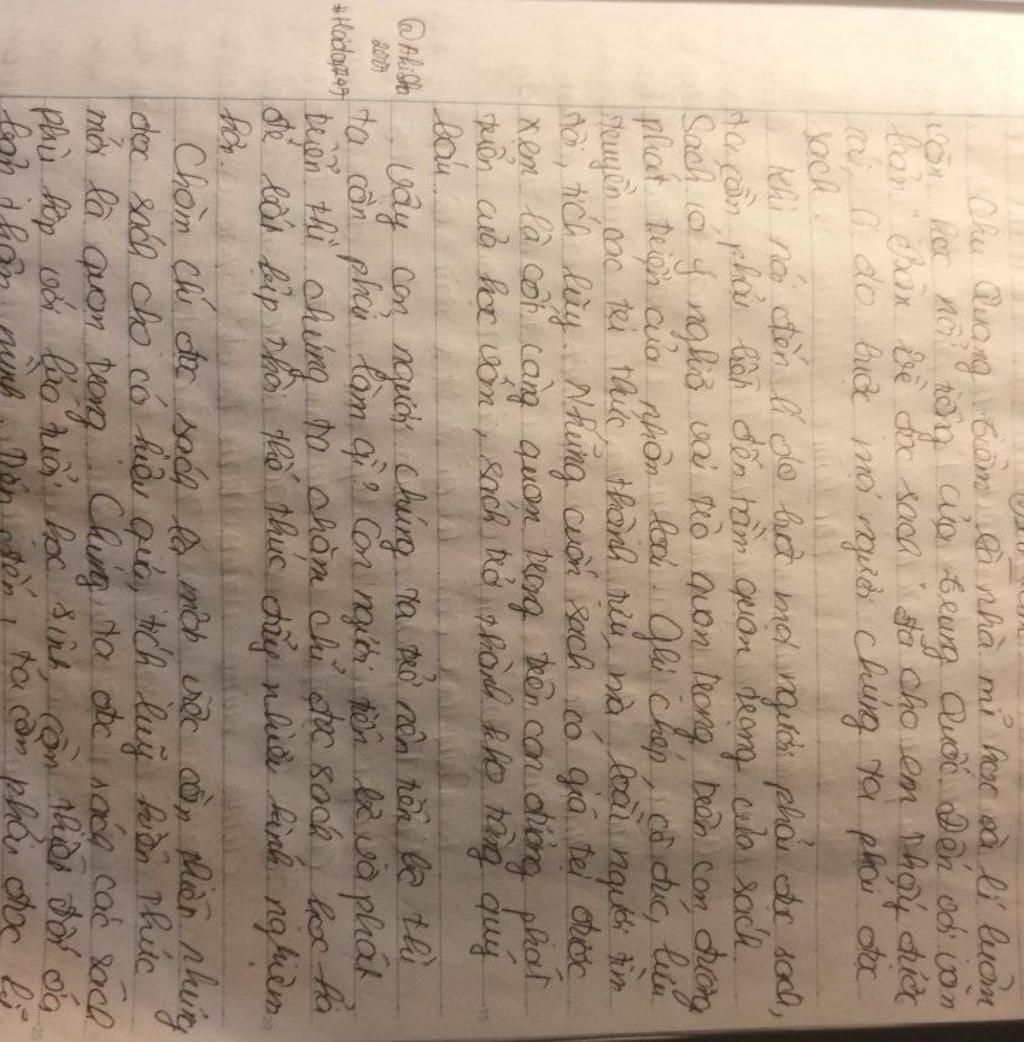 Chu Quang Tiềm là nhà mĩ học và lí luận
văn học nổi tiếng của Trung Quốc. Đến với văn
bản "Bàn về đọc sách" đã cho em thấy được
cái lí do buộc mọi người chúng ta phải đọc
sách.
Khi nói đến lí do buộc mọi người phải đọc sách,
ta cần phải biết đến tầm quan trọng của sách.
Sách có ý nghĩa vai trò quan trọng trên con đường
phát triển của nhân loại. Ghi chép, cô đúc, lưu
truyền các tri thức, thành tựu mà loài người tìm
tòi, tích lũy. Những cuốn sách có giá trị được
xem là cột càng quan trọng trên con đường phát
triển của học vấn, sách trở thành kho tàng quý
báu.
Vậy con người chúng ta trở nên tồn bộ thì
ta cần phải làm gì? Con người tiến bộ và phát
triển thì chúng ta chăm chỉ đọc sách học hỏi
để bắt kịp thời thế thúc đẩy nhiều kinh nghiệm
hơn.
Chăm chỉ đọc sách là một việc cần thiết nhưng
đọc sách cho có hiệu quả, tích luỹ kiến thức
mới là quan trọng. Chúng ta đọc sách các sách
phù hợp với lứa tuổi học sinh, cần thiết đối với
bản thân mình. Dần dần, ta cần phải đọc
@Akisha
#Hoidap247